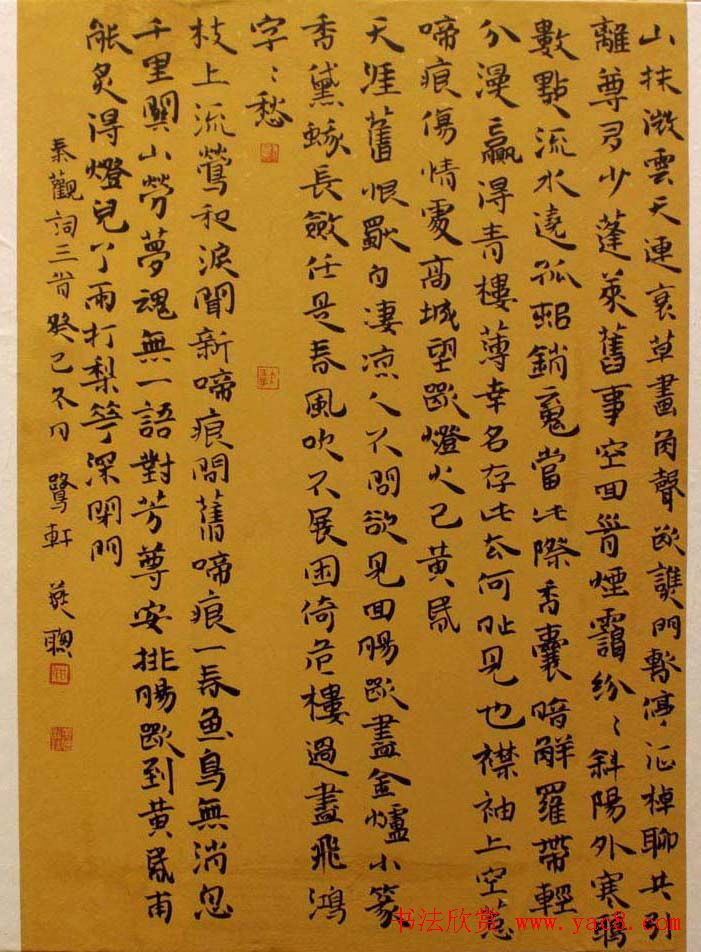 山抹微雲天連衰草畫角聲斷譙門暫停征棹聊共引
離尊多少蓬萊舊事空回首煙靄紛〻斜陽外寒鴉
數點流水遶孤邨銷魂當此際香囊暗解羅帶輕
分漫贏得青樓薄幸名存此去何時見也襟袖上空惹
啼痕傷情處高城望斷燈火已黃昏
天涯舊恨獨自凄涼人不問欲見回腸斷盡金爐小篆
香黛蛾長斂任是春風吹不展困倚危樓過盡飛鴻
字〻愁
枝上流鶯和淚聞新啼痕間舊啼痕一春魚鳥無消息
千里關山勞夢魂無一語對芳尊安排腸斷到黃昏甫
能炙得燈兒了雨打梨花深閉門
秦觀詞三首癸巳冬月 鷺軒 聰
书法欣赏 www.yac8.com